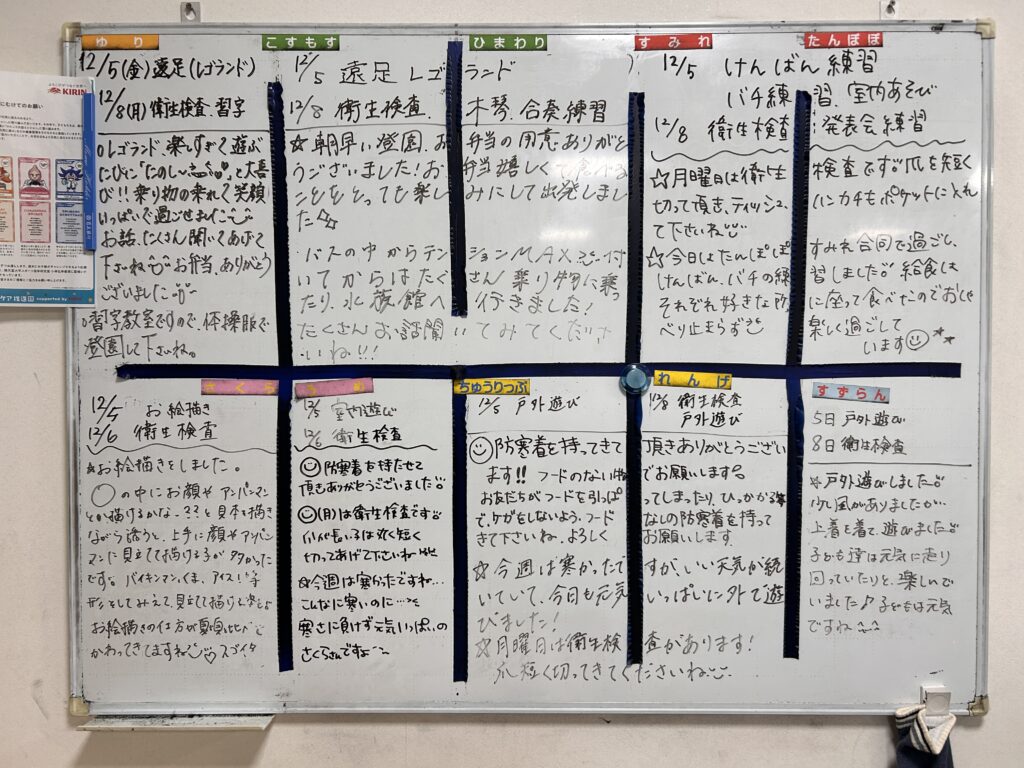 ゆり
12/5(金)遠足(レゴランド)
12/8(月)衛生検査.習字
○レゴランド、楽しすぎて遊ぶ
たびに"たのし〜い"と大喜
び!!乗り物の乗れて笑顔
いっぱいで過ごせました
お話、たくさん聞いてあげて
下さいね お弁当、ありがとう
ございました
○習字教室ですので、体操服で
登園して下さいね。
こすもす
ひまわり
12/5 遠足 レゴランド
12/8 衛生検査. 木琴、合奏練習
☆朝早い登園、お弁当の用意ありがと
うございました!お弁当嬉しくて
ことをとっても楽しみにして出発しまし
た
バスの中からテンションMAXで
いてからはたくさん乗り物に乗っ
たり、水族館へ行きました!
たくさんお話聞いてみてくださ
いね!!!
すみれ
たんぽぽ
12/5 けんばん練習
バチ練習、室内あそび
12/8 衛生検査 発表会練習
☆月曜日は衛生検査です。爪を短く
切って頂き、ティッシュ、ハンカチもポケットに入れ
て下さいね
☆今日はたんぽぽすみれ合同で過ごし、
けんばん、バチの練習しました 給食は
それぞれ好きな所に座って食べたのでおしゃ
べり止まらず 楽しく過ごして
います
さくら
12/5 お絵描き
12/6 衛生検査
☆お絵描きをしました。
○の中にお顔や アンパンマン
とか描けるかな..??と見本も描き
ながら誘うと、上手に顔やアンパン
マンに見立てて描ける子が多かった
です。バイキンマン、くま、アイス!手
お絵描きの仕方が夏頃と比べて
かわってきてますね スゴイタ
12/5 室内遊び
12/6 衛生検査
防寒着を持たせて
頂きありがとうございました
(月)は衛生検査です
爪が長い子は短く
切ってあげて下さいね
☆今週は寒かったですね…
こんなに寒いのに…
寒さに負けず元気いっぱいの
さくらさんですね
ちゅうりっぷ
れんげ
12/5 戸外遊び
12/8 衛生検査
戸外遊び
防寒着を持ってきて頂きありがとうござい
ます!! フードのない物でお願いします
お友だちがフードを引っぱってしまったり、ひっかかる事
で、ケガをしないよう、フードなしの防寒着を持って
きて下さいね、よろしくお願いします
☆今週は寒かったですが、いい天気が続
いていて、今日も元気いっぱいに外で遊
びました!
☆月曜日は衛生検査があります!
爪短く切ってきてくださいね
すずらん
5日 戸外遊び
8日 衛生検査
☆戸外遊びしました
少し風がありましたが…
上着を着て、遊びました
子ども達は元気に走り
回っていたりと、楽しんで
いました♪子どもは元気
ですね
KIRIN